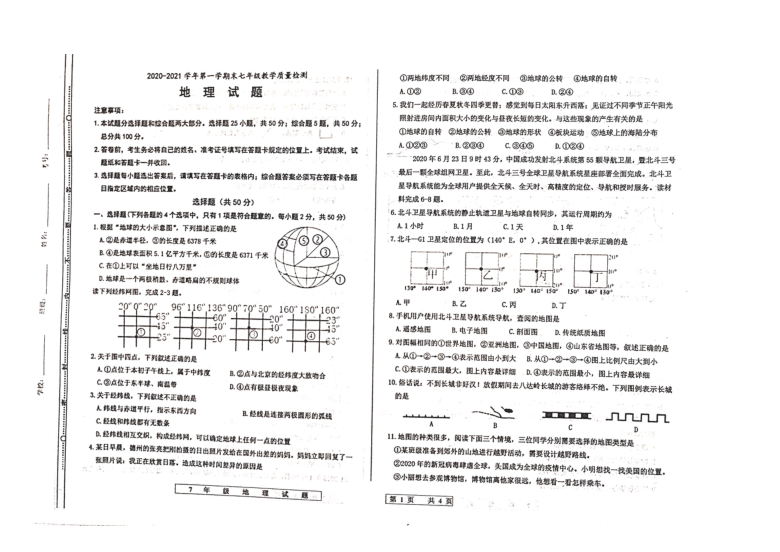 2020-2021 学年第一学期末七年级教学质量检测
地 理 试 题
注意事项:
1.本试题分选择题和综合题两大部分。选择题 25 小题,共 50 分;综合题 5 题,共 50 分;
总分共 100 分。
2.答卷前,考生务必将自己的姓名、准考证号填写在答题卡规定的位置上。考试结束,试
题纸和答题卡一并收回。
3.选择题每小题选出答案后,请填写在答题卡的表格内;综合题答案必须写在答题卡各题
目指定区域内的相应位置。
选择题(共 50 分)
一、选择题(下列各题的 4 个选项中,只有 1 项是符合题意的。每小题 2 分,共 50 分)
1.根据“地球的大小示意图”,下列描述正确的是
A.②是赤道半径,③的长度是 6378 千米
B.④是地球表面积 5.1 亿平方千米,⑤的长度是 6371 千米
C.在①上可以“坐地日行八万里”
D.地球是一个两极稍鼓、赤道略扁的不规则球体
读下列经纬网图,完成 2-3 题。
20° 0° 20° 96° 116° 136° 90° 70° 50° 160° 180° 160°
2.关于图中四点,下列叙述正确的是
A.①点位于本初子午线上,属于中纬度
B.②点与北京的经纬度大致吻合
C.③点位于东半球、南温带
D.④点有极昼极夜现象
3.关于经纬线,下列叙述不正确的是
A.纬线与赤道平行,指示东西方向
B.经线是连接两极圆形的弧线
C.经线和纬线都有无数条
D.经线纬线相互交织,构成经纬网,可以确定地球上任何一点的位置
4.某日早晨,德州的张亮把刚拍摄的日出照片发给在国外出差的妈妈,妈妈立即回复了一
张照片说:我正在欣赏日落。造成这种时间差异的原因是
7 年 级 地 理 试 题
①两地纬度不同 ②两地经度不同 ③地球的公转 ④地球的自转
A.①② B.③④ C.①③ D.②④
5.我们一起经历春夏秋冬四季更替;感觉到每日太阳东升西落;见证过不同季节正午阳光
照射进房间内面积大小的变化与昼夜长短的变化。与这些现象的产生有关的是
①地球的自转 ②地球的公转 ③地球的形状 ④板块运动 ⑤地球上的海陆分布
A.①②③ B.②③④ C.③④⑤ D.①②④
2020 年 6 月 23 日 9 时 43 分,中国成功发射北斗系统第 55 颗导航卫星,暨北斗三号
最后一颗全球组网卫星。至此,北斗三号全球卫星导航系统星座部署全面完成。北斗卫
星导航系统能为全球用户提供全天候、全天时、高精度的定位、导航和授时服务。读材
料完成 6-8 题。
6.北斗卫星导航系统的静止轨道卫星与地球自转同步,其运行周期约为
A.1 小时 B.1 月 C.1 天 D.1 年
7.北斗—G1 卫星定位的位置为(140° E,0° ),其位置在图中表示正确的是
甲 乙 丙 丁
A.甲 B.乙 C.丙 D.丁
8.手机用户使用北斗卫星导航系统导航,查阅的地图是
A.遥感地图 B.电子地图 C.剖面图 D.传统纸质地图
9.对图幅相同的①世界地图,②亚洲地图,③中国地图,④山东省地图等,叙述正确的是
A.从①→②→③→④表示范围由小到大 B.从①→②→③→④图上比例尺由大到小
C.①表示的范围最大,图上内容最详细 D.④表示的范围最小,图上内容最详细
10.俗话说:不到长城非好汉!放假期间去八达岭长城的游客络绎不绝,下列图例表示长城
的是
A B C D
11.地图的种类很多,阅读下面三个情境,三位同学分别需要选择的地图类型是
①某班级准备到郊外的山地进行越野活动,需要设计越野路线。
②2020 年的新冠病毒肆虐全球,美国成为全球的疫情中心。小明想找一找美国的位置。
③小丽想去参观博物馆,博物馆离他家很远,他想看一看怎样乘车。
第 1 页 共 4 页
学校:
班级:
姓名:
考号: